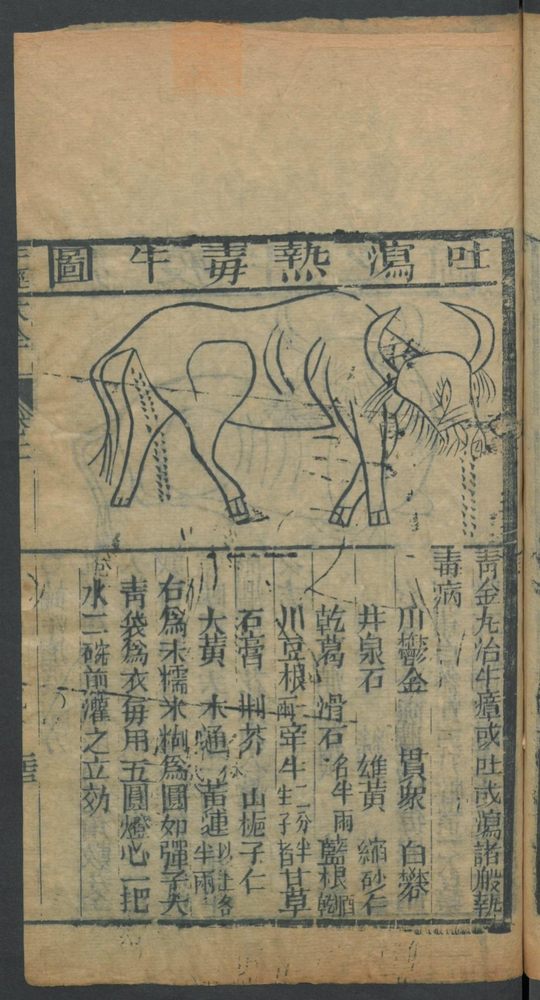 吐瀉熱毒牛圖
青金丸治牛瘴或吐或瀉諸般熱
毒病
川鬱金 貫眾 白礬
井泉石 雄黃 縮砂仁
乾葛 滑石各半兩 藍根
川豆根 牽牛 甘草
石膏 荆芥 山梔子仁
大黃 木通 黃連以上各半兩
右爲末糯米糊爲圓如彈子大
青袋爲衣每用五圓燈心一把
水二碗煎灌之立効